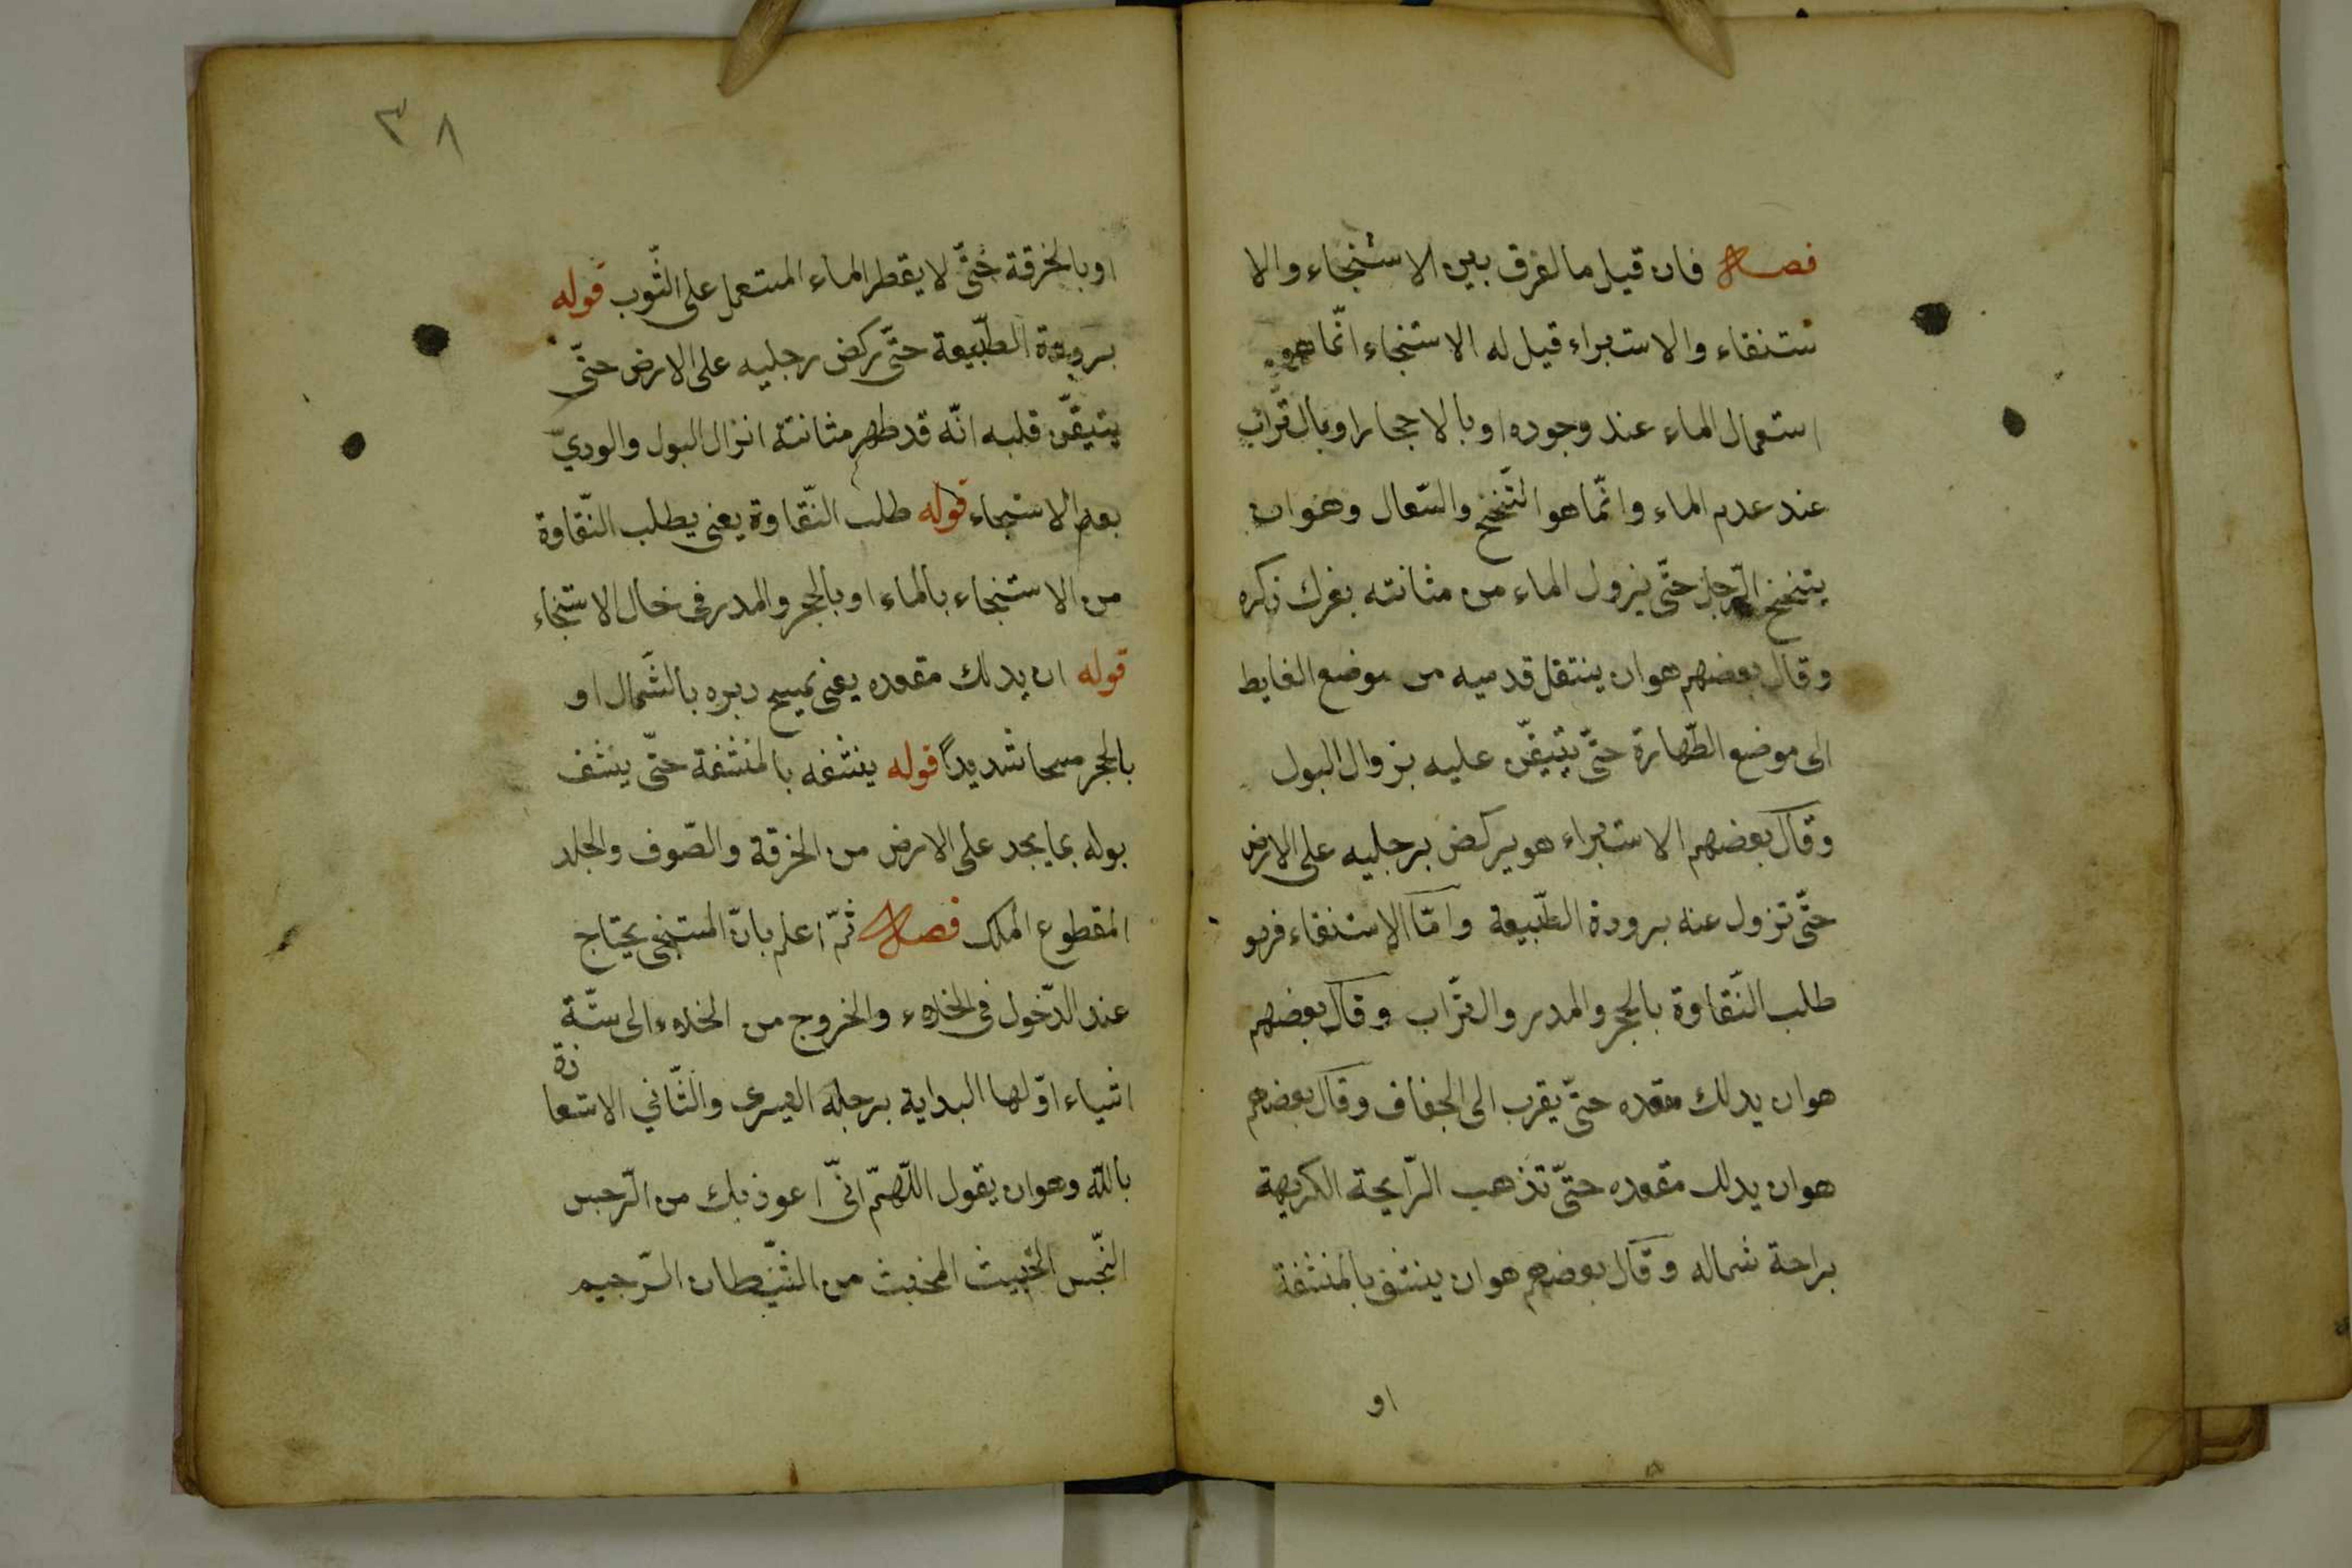 فصل فان قيل ما الفرق بين الاستنجاء والا
ستنقاء والاستبراء قيل له الاستنجاء انّما هو
استعمال الماء عند وجوده او بالاحجار او بالتّراب
عند عدم الماء وانّما هو التّنخنح والسّعال وهو ان
يتنخنح الرّجل حتّى يزول الماء من مثانته بفرك ذكره
وقال بعضهم هو ان ينتقل قدميه من موضع الغايط
الى موضع الطّهارة حتّى يتيقّن عليه بزوال البول
وقال بعضهم الاستبراء هو يركض برجليه على الارض
حتّى تزول عنه برودة الطّبيعة وامّا الاستنقاء فهو
طلب النّقاوة بالحجر والمدر والتّراب وقال بعضهم
هو ان يدلك مقعده حتّى يقرب الى الجفاف وقال بعضهم
هو ان يدلك مقعده حتّى تذهب الرّايحة الكريهة
براحة شماله وقال بعضهم هو ان ينشف بالمنشفة
او
٣٨
او بالخرقة حتّى لا يقطر الماء المستعمل على الثّوب قوله
برودة الطّبيعة حتّى يركض رجليه على الارض حتّى
يتيقّن قلبه انّه قد طهر مثانته انزال البول والوديّ
بعد الاستنجاء قوله طلب النّقاوة يعنى يطلب النّقاوة
من الاستنجاء بالماء او بالحجر والمدر فى حال الاستنجاء
قوله ان يدلك مقعده يعنى يمسح دبره بالشّمال او
بالحجر مسحا شديداً قوله ينشفه بالمنشفة حتّى ينشف
بوله بما يجد على الارض من الخرقة والصّوف والجلد
المقطوع فصل ثمّ اعلم بانّ المستنجى يحتاج
عند الدّخول فى الخلاء والخروج من الخلاء الى ستّة
اشياء اوّلها البداية برجله اليسرى والثّاني الاستعا
ذة
بالله وهو ان يقول اللّهمّ انّى اعوذ بك من الرّجس
النّجس الخبيث المخبث من الشّيطان الرّجيم